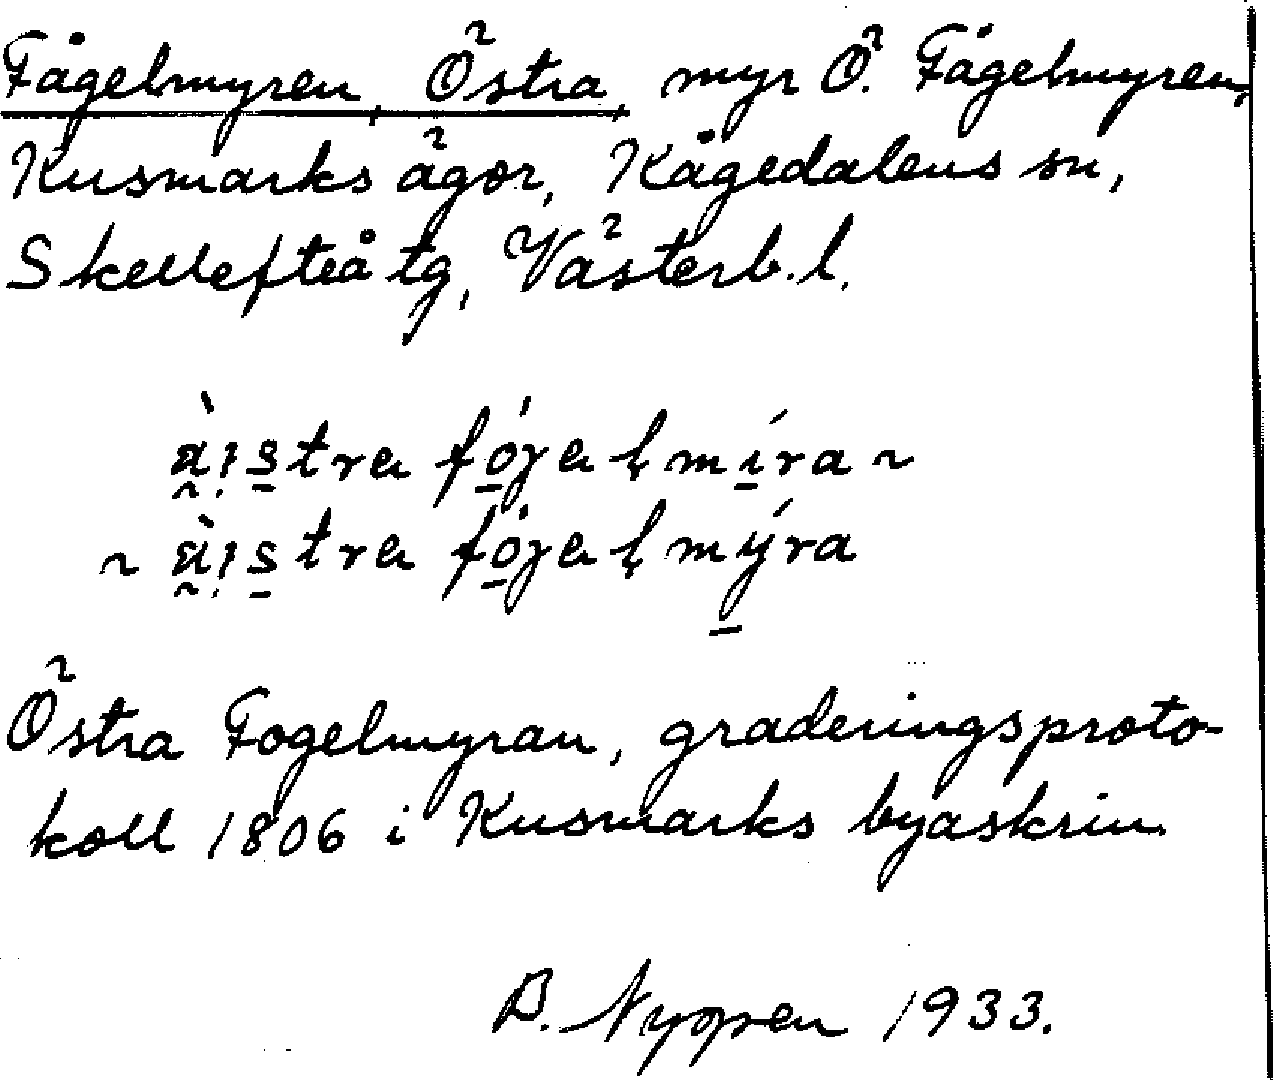 Fågelmyren, Östra, myr Ö. Fågelmyren,
Kusmarks ägor, Kågedalens sn,
Skellefteå tg, Västerb. l.
östra Fogelmyran, graderingsproto-
koll 1806 i Kusmarks byaskrin.
B. Nygren 1933.